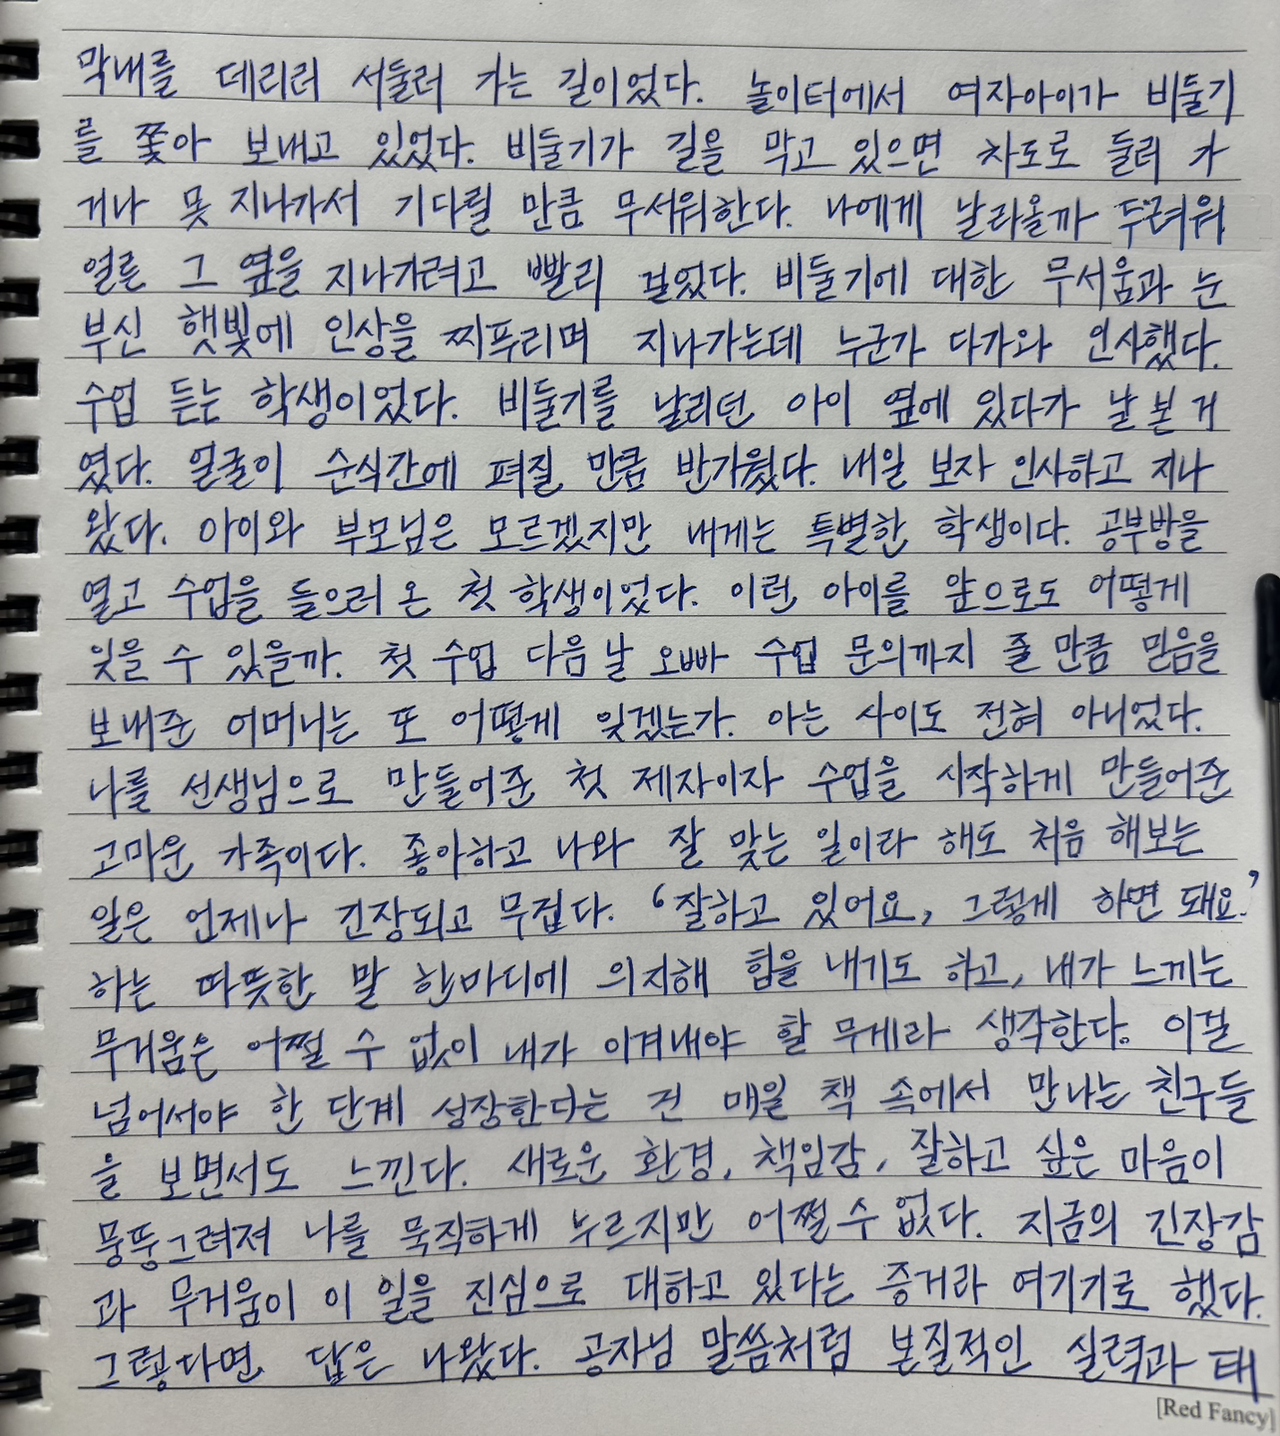 막내를 데리러 서둘러 가는 길이었다. 놀이터에서 여자아이가 비둘기
를 쫓아 보내고 있었다. 비둘기가 길을 막고 있으면 차도로 둘러 가
거나 못 지나가서 기다릴 만큼 무서워한다. 나에게 날라올까 두려워
얼른 그 옆을 지나가려고 빨리 걸었다. 비둘기에 대한 무서움과 눈
부신 햇빛에 인상을 찌푸리며 지나가는데 누군가 다가와 인사했다.
수업 듣는 학생이었다. 비둘기를 날리던 아이 옆에 있다가 날 본 거
였다. 얼굴이 순식간에 펴질 만큼 반가웠다. 내일 보자 인사하고 지나
왔다. 아이와 부모님은 모르겠지만 내게는 특별한 학생이다. 공부방을
열고 수업을 들으러 온 첫 학생이었다. 이런 아이를 앞으로도 어떻게
잊을 수 있을까. 첫 수업 다음날 오빠 수업 문의까지 줄 만큼 믿음을
보내준 어머니는 또 어떻게 잊겠는가. 아는 사이도 전혀 아니었다.
나를 선생님으로 만들어준 첫 제자이자 수업을 시작하게 만들어준
고마운 가족이다. 좋아하고 나와 잘 맞는 일이라 해도 처음 해보는
일은 언제나 긴장되고 무겁다. ‘잘하고 있어요, 그렇게 하면 돼요.’
하는 따뜻한 말 한마디에 의지해 힘을 내기도 하고, 내가 느끼는
무거움은 어쩔 수 없이 내가 이겨내야 할 무게라 생각한다. 이걸
넘어서야 한 단계 성장한다는 건 매일 책 속에서 만나는 친구들
을 보면서도 느낀다. 새로운 환경, 책임감, 잘하고 싶은 마음이
뭉뚱그려져 나를 묵직하게 누르지만 어쩔 수 없다. 지금의 긴장감
과 무거움이 이 일을 진심으로 대하고 있다는 증거라 여기기로 했다.
그렇다면 답은 나왔다. 공자님 말씀처럼 본질적인 실력과 태
[Red Fancy]